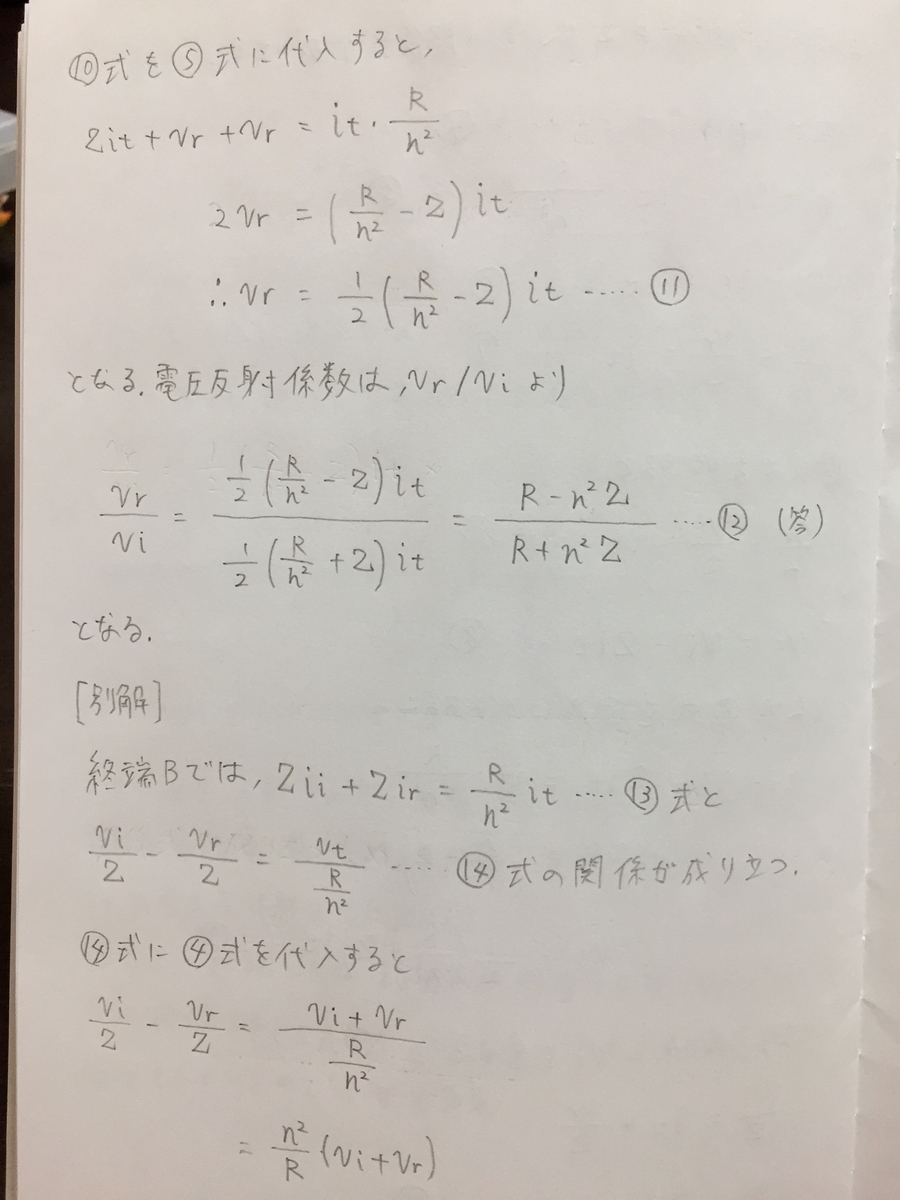 ⑩式を⑤式に代入すると,
Zit + vr + vr = it・R/n²
2vr = (R/n² - Z) it
∴ vr = 1/2 (R/n² - Z) it ····· ⑪
となる. 電圧反射係数は, vr/vi より
vr/vi = 1/2 (R/n² - Z) it / 1/2 (R/n² + Z) it = R - n²Z / R + n²Z ····· ⑫ (答)
となる.
[別解]
終端Bでは, Zii + Zir = R/n² it ····· ⑬式と
vi/Z - vr/Z = vt/(R/n²) ····· ⑭式の関係が成り立つ.
⑭式に④式を代入すると
vi/Z - vr/Z = (vi + vr)/(R/n²)
= n²/R (vi + vr)